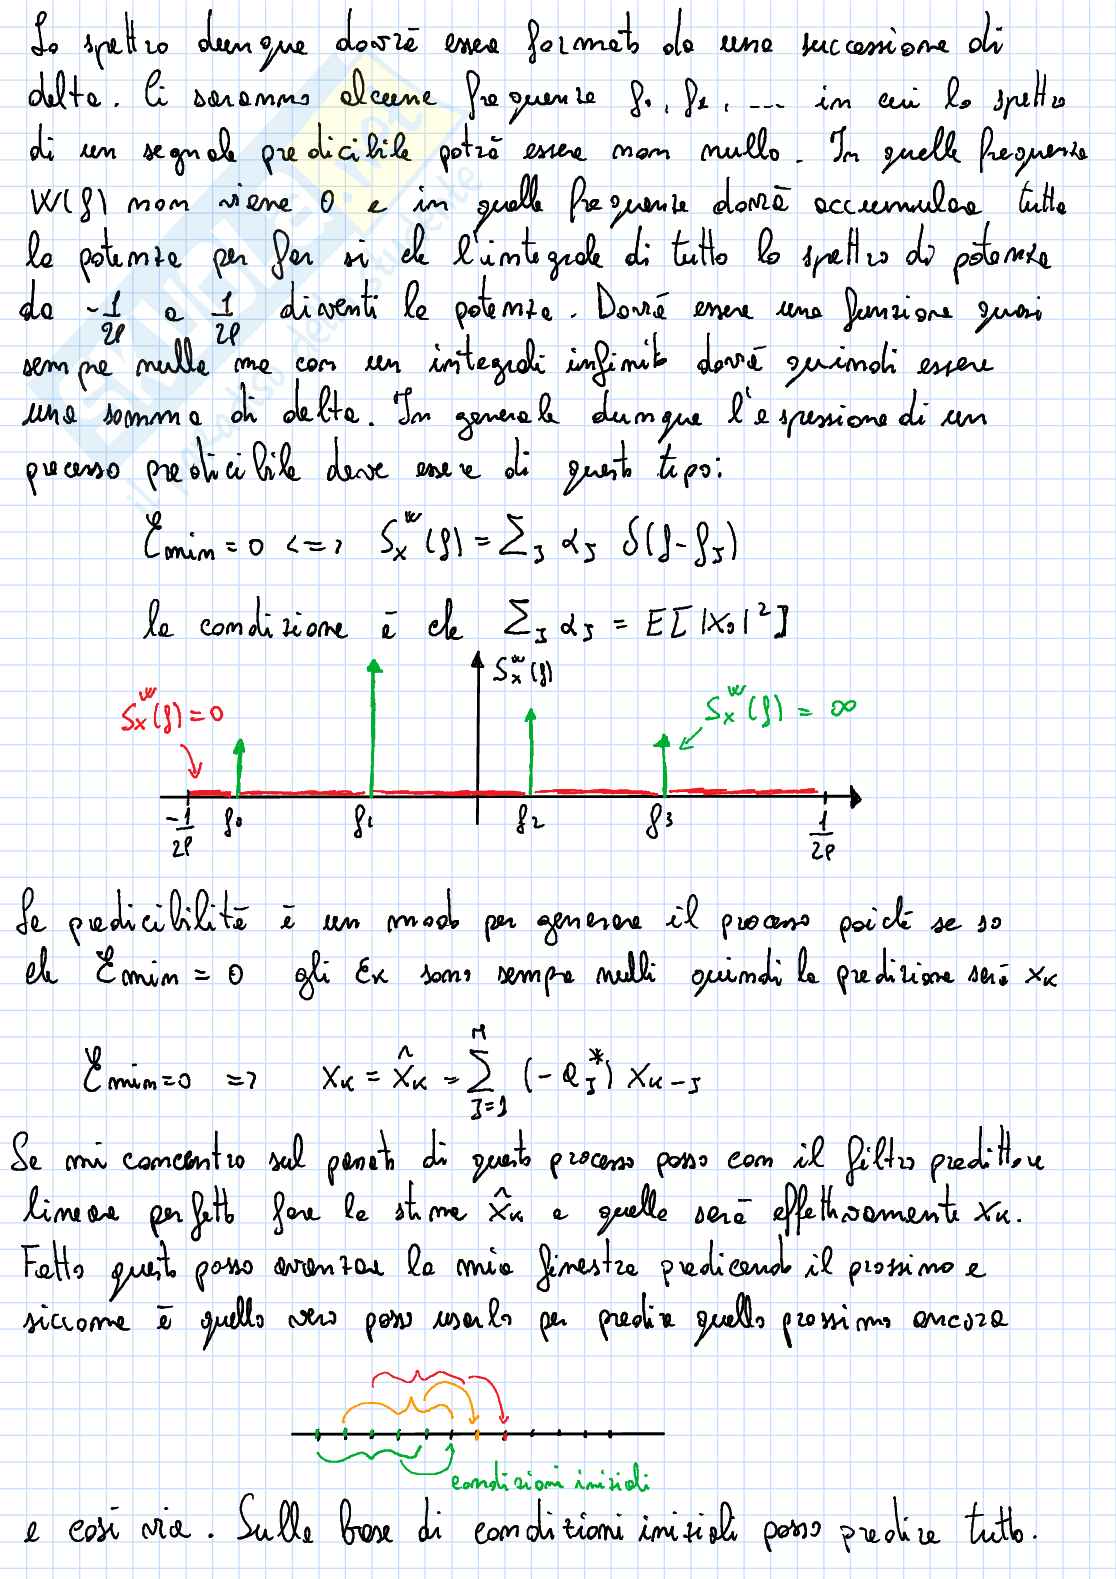 Lo spettro dunque dovrà essere formato da una successione di
delta. Ci saranno alcune frequenze f₀, f₁, ... in cui lo spettro
di un segnale predicibile potrà essere non nullo. In quelle frequenze
W(f) non viene 0 e in quelle frequenze dovrà accumulare tutta
la potenza per far si che l'integrale di tutto lo spettro di potenza
da -1/2P a 1/2P diventi la potenza. Dovrà essere una funzione quasi
sempre nulla ma con un integrali infinito dovrà quindi essere
una somma di delta. In generale dunque l'espressione di un
processo predicibile deve essere di questo tipo:
Ɛmin = 0 <=> Sx^w(f) = Σ_J α_J δ(f-f_J)
la condizione è che Σ_J α_J = E[|X₀|²]
Sx^w(f)
Sx^w(f) = 0
Sx^w(f) = ∞
-1/2P f₀ f₁ f₂ f₃ 1/2P
La predicibilità è un modo per generare il processo poichè se so
che Ɛmin = 0 gli εk sono sempre nulli quindi la predizione sarà xk
Ɛmin=0 => xk = x̂k = Σ_{J=1}^{M} (-a_J*) x_{k-J}
Se mi concentro sul passato di questo processo posso con il filtro predittore
lineare perfetto fare la stima x̂k e quella sarà effettivamente xk.
Fatto questo posso avanzare la mia finestra predicendo il prossimo e
siccome è quello vero posso usarlo per predire quello prossimo ancora
condizioni iniziali
e così via. Sulla base di condizioni iniziali posso predire tutto.